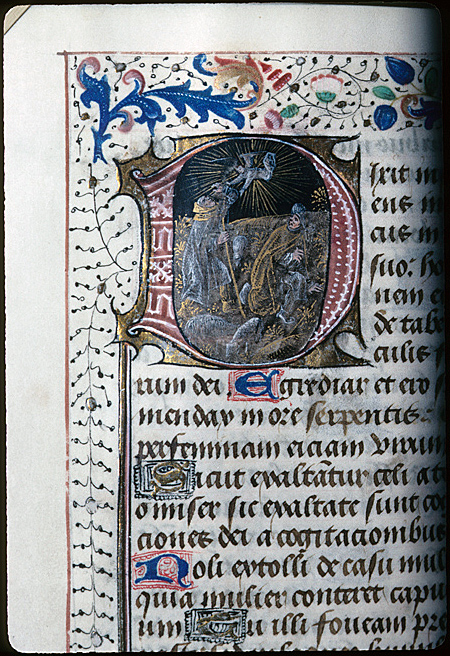 Dixit in
eus in
cus m
suo: ho
nem e
de tabe
culis s
rum dei Egrediar et ero s
mendax in ore serpentis:
per feminam eiciam virum
Sicut exaltātur celi a t
o miser sic exaltate sunt co
ciones dei a cogitacionibus
Noli extolli de casu muli
quia mulier conteret capu
um Tu illi foueam pre